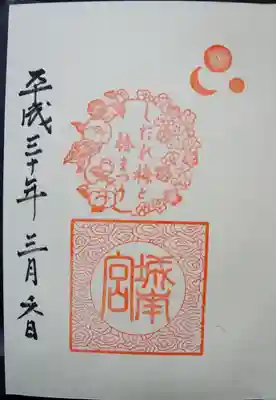 しだれ梅と
椿まつり
城南
宮
平成三十年 三月 日